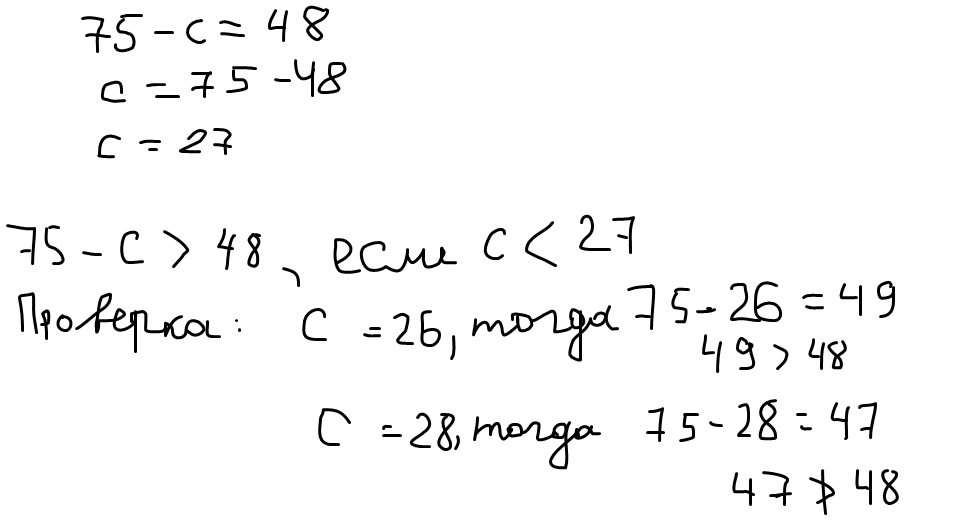 75 - c = 48
c = 75 - 48
c = 27
75 - C > 48, если C < 27
Проверка: C = 26, тогда 75 - 26 = 49
49 > 48
C = 28, тогда 75 - 28 = 47
47 ≯ 48